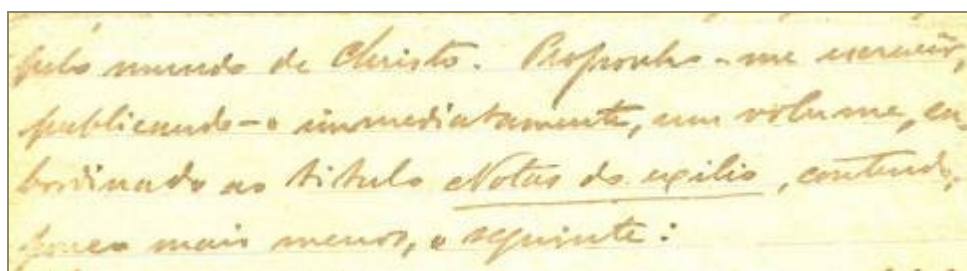 pelo mundo de Christo. Proponho-me escrever,
publicando-o immediatamente, um volume, su-
bordinado ao titulo Notas do exilio, contendo,
pouco mais menos, o seguinte: